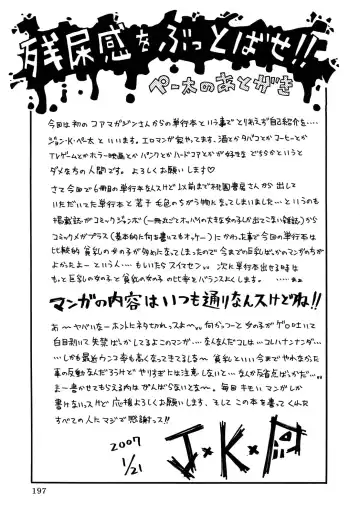 残尿感をぶっとばせ!!
ペー太のあとがき
今回は初のコアマガジンさんからの単行本という事でとりあえず自己紹介を…
ジョン・K・ペー太といいます。エロマンガ家やってます、酒とタバコとコーヒーとか
TVゲームとかホラー映画とかパンクとかハードコアとかが好きなどちらかというと
ダメな方の人間です。よろしくお願いします♡
さて今回で6冊目の単行本なんスけど以前まで桃園書房さんから出して
いただいてた単行本と若干毛色のちがう物になってしまいました…というのも
掲載誌がコミックジャンボ(一冊ぶ〜とオッパイの大きな女の子しか出てこない雑誌)から
コミックメガプラス(基本的に何を書いてもオッケー)にかわった事で今回の単行本は
比較的貧乳の女の子が多めになってしまったので今までの巨乳ばっかのマンガの方が
よかったよーという人…もしいたらスイマセン。次に単行本出せる時は
もっと巨乳の女の子と貧乳の女の子の比率とバランスよくします。
マンガの内容はいつも通りなんスけどね!!
あ〜ヤベいなーホントにネタ切れっスよ〜。何かっつーと女の子がゲロはいて
白目剥いて失禁ばっかしてるよこのマンガ…なんなんだコレは…コレハナンナンダ…
…しかも最近ウンコ率も高くなってきてるしな〜 貧乳といい今までやれなかった
事の反動なんだろうけどやりすぎには注意しないと…なんか反省点ばっかだ…
よー書かせてもらえる内はがんばらないとな〜。毎日キモいマンガしか
書けないっスけど応援よろしくお願いします、そしてこの本を買ってくれた
すべての人にマジで感謝っス!!
2007
1/21
J×K×P
197